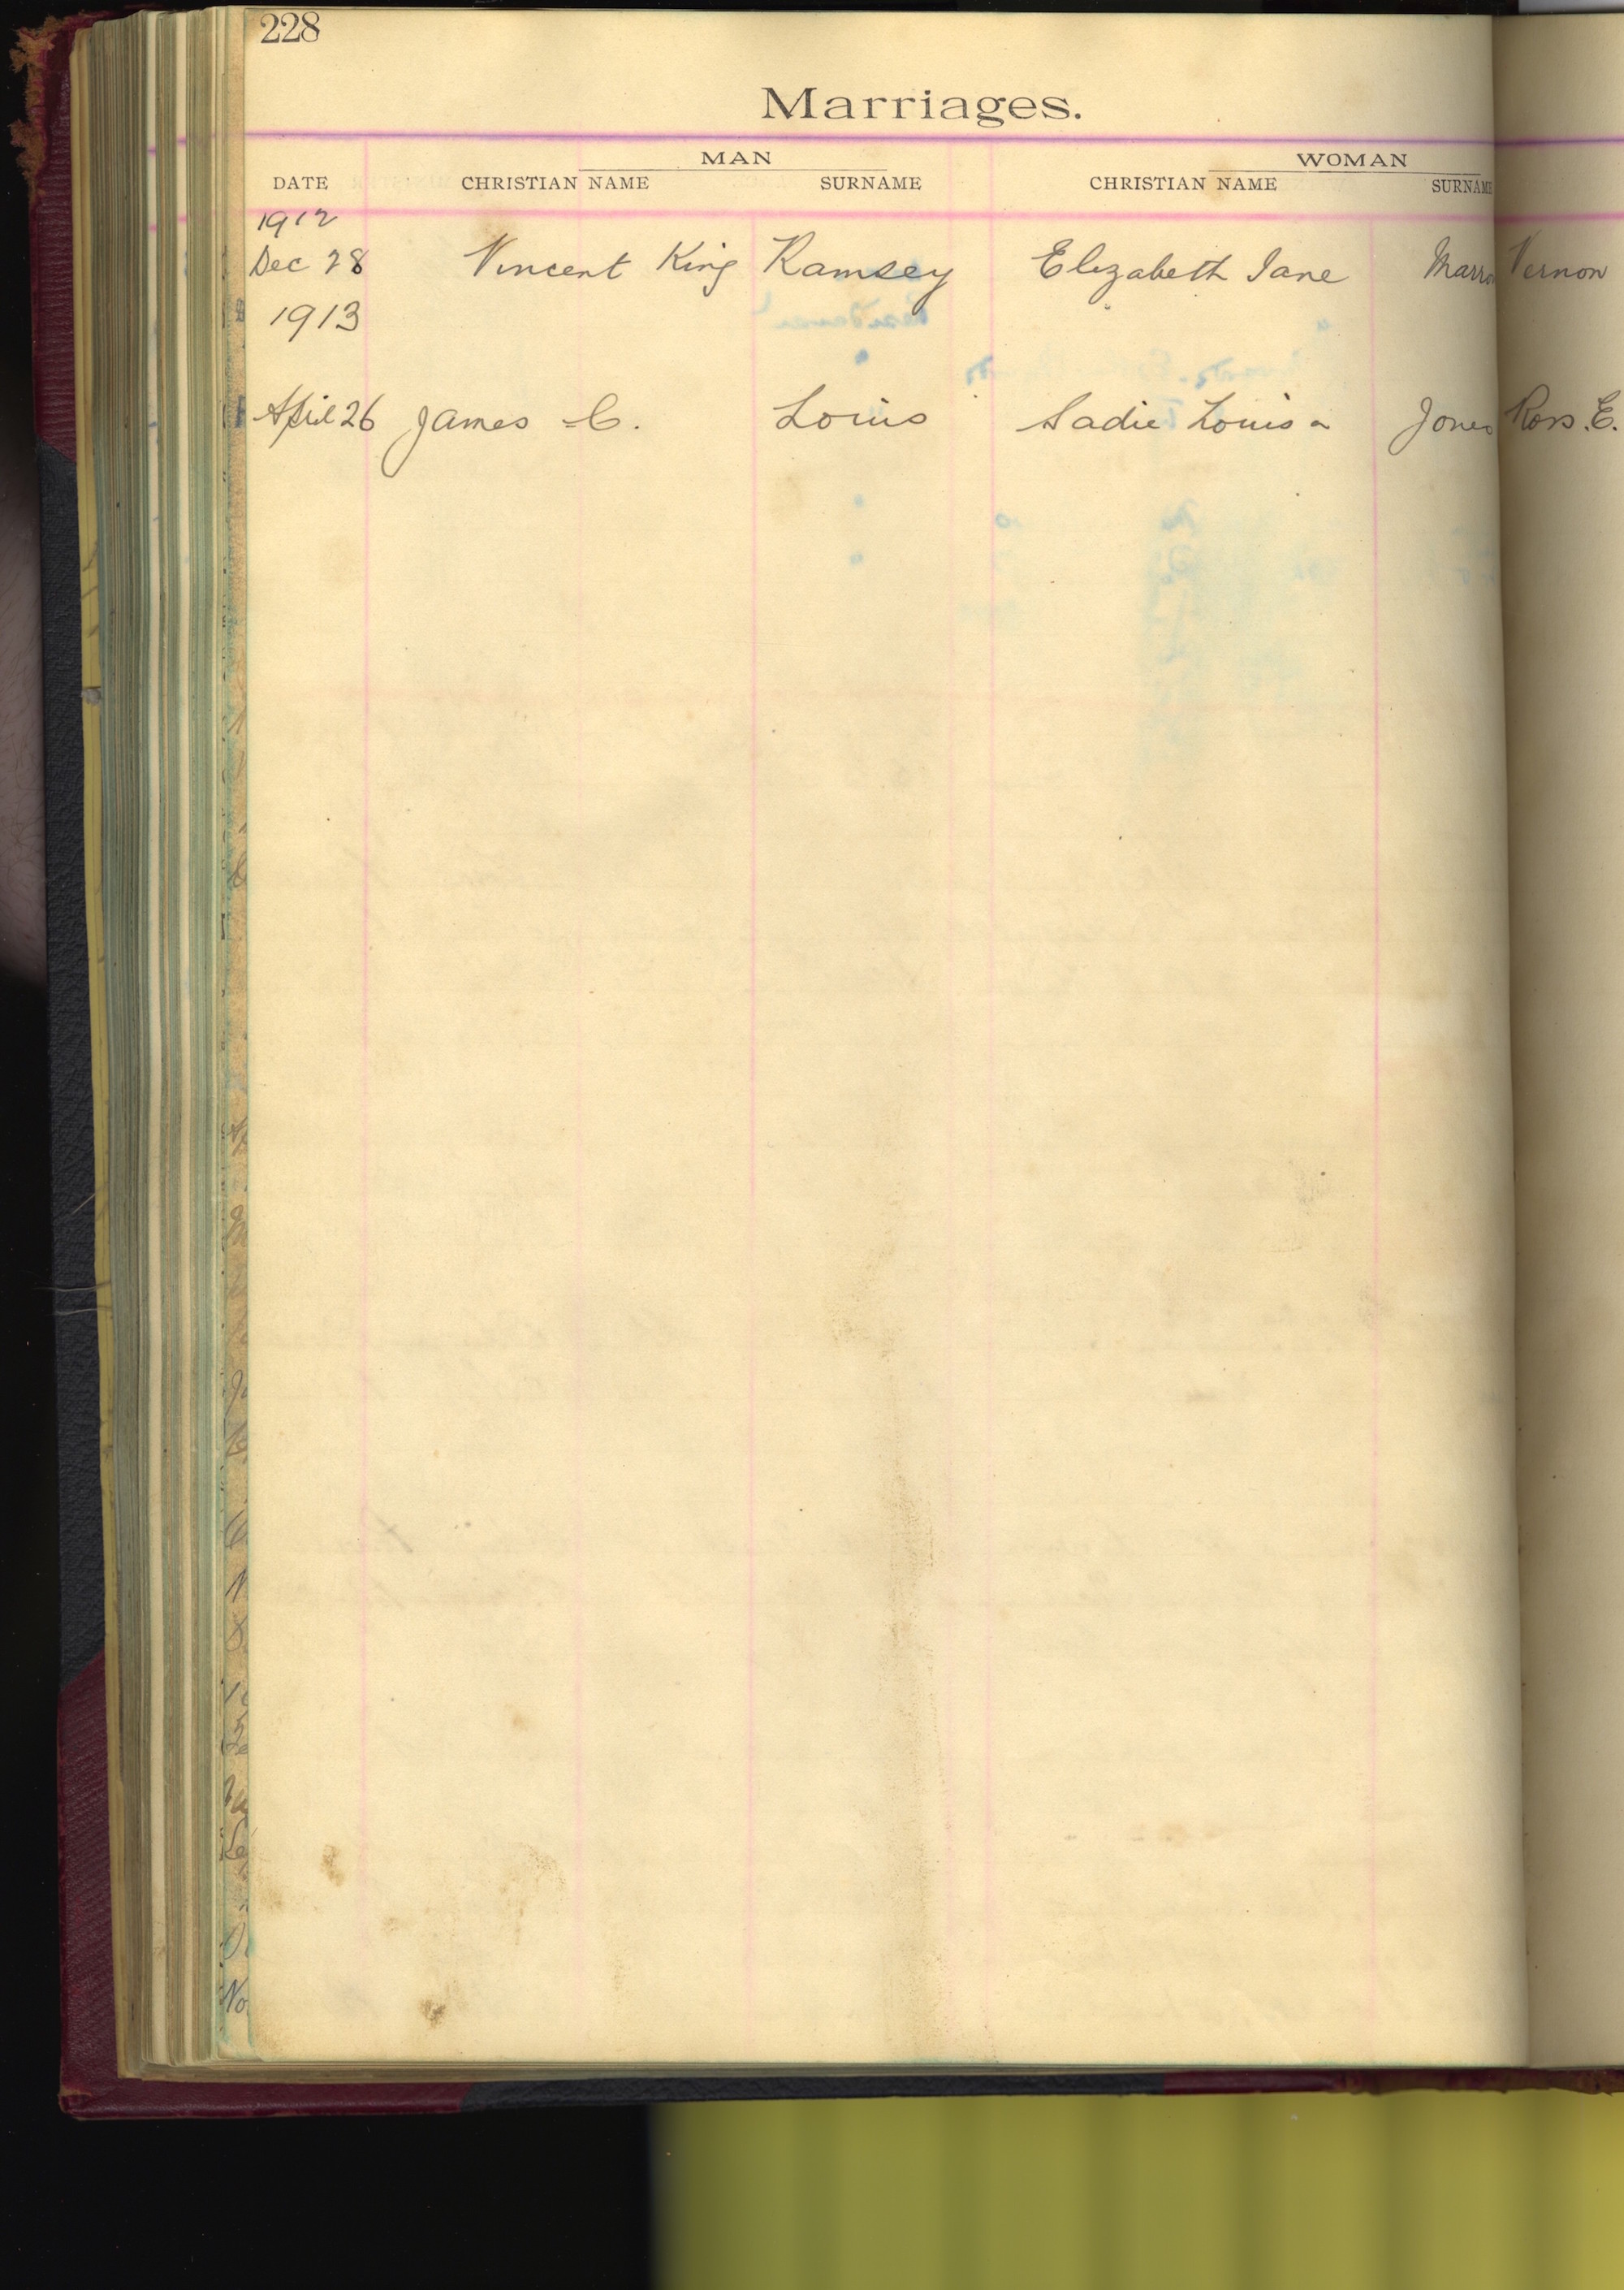 228
Marriages.
MAN WOMAN
DATE CHRISTIAN NAME SURNAME CHRISTIAN NAME SURNAME
1912
Dec 28 Vincent King Ramsey Elizabeth Jane Marro Vernon
1913
April 26 James C. Louis Sadie Louisa Jones Ross. E.
No